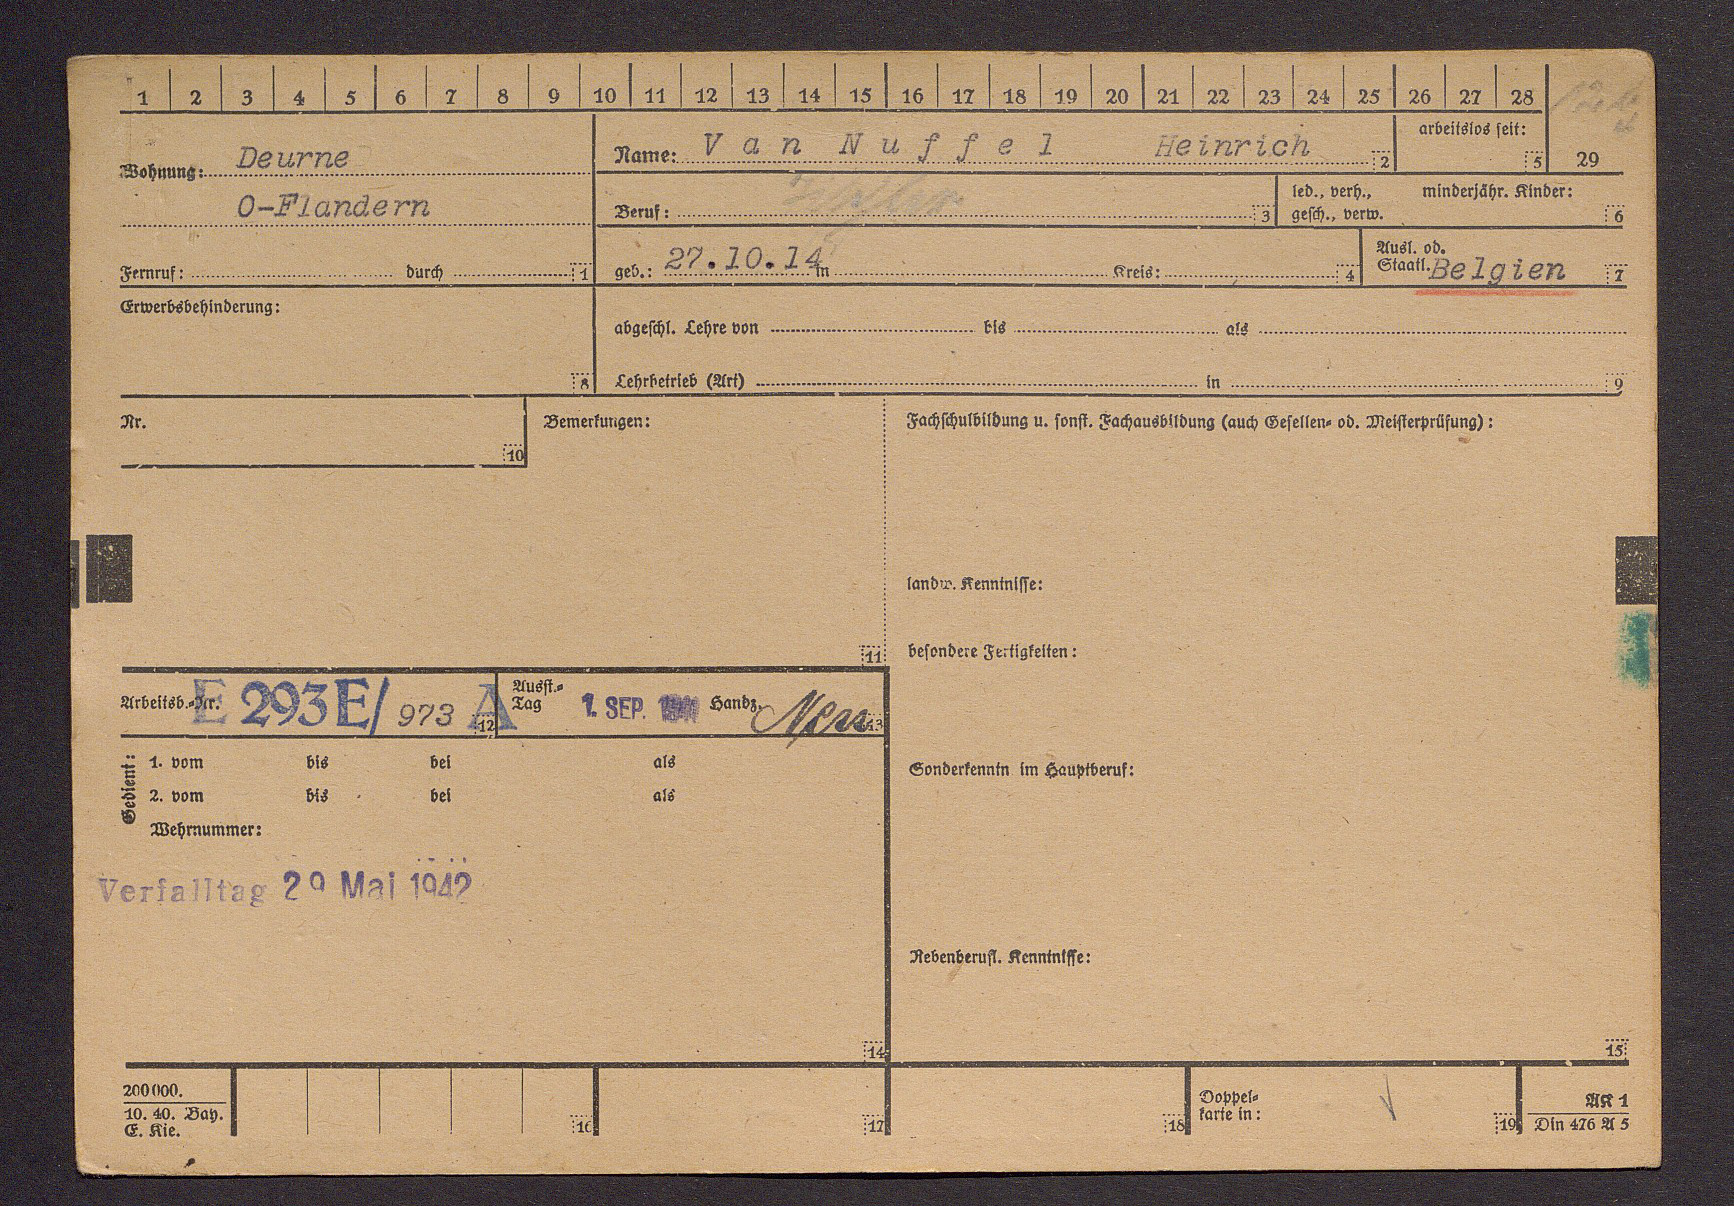 1 2 3 4 5 6 7 8 9 10 11 12 13 14 15 16 17 18 19 20 21 22 23 24 25 26 27 28
Wohnung: Deurne
O-Flandern
Fernruf: durch 1
Name: Van Nuffel Heinrich 2
arbeitslos seit: 5
29
Beruf: 3
led., verh., minderjähr. Kinder:
gesch., verw. 6
geb.: 27.10.14 in Kreis: 4
Ausl. od.
Staatl. Belgien 7
Erwerbsbehinderung: 8
abgeschl. Lehre von bis als
Lehrbetrieb (Art) in 9
Nr. 10
Bemerkungen: 11
Fachschulbildung u. sonst. Fachausbildung (auch Gesellen- od. Meisterprüfung):
landw. Kenntnisse:
besondere Fertigkeiten:
Arbeitsb.-Nr. E 293E/ 973 A 12
Ausst.-
Tag 1. SEP. Handz. 13
Gedient: 1. vom bis bei als
2. vom bis bei als
Wehrnummer:
Verfalltag 29 Mai 1942
14
Sonderkenntn im Hauptberuf:
Nebenberufl. Kenntnisse:
15
200000.
10. 40. Bay.
E. Kie.
16 17 18
Doppel-
karte in: 19
AK 1
Din 476 A 5